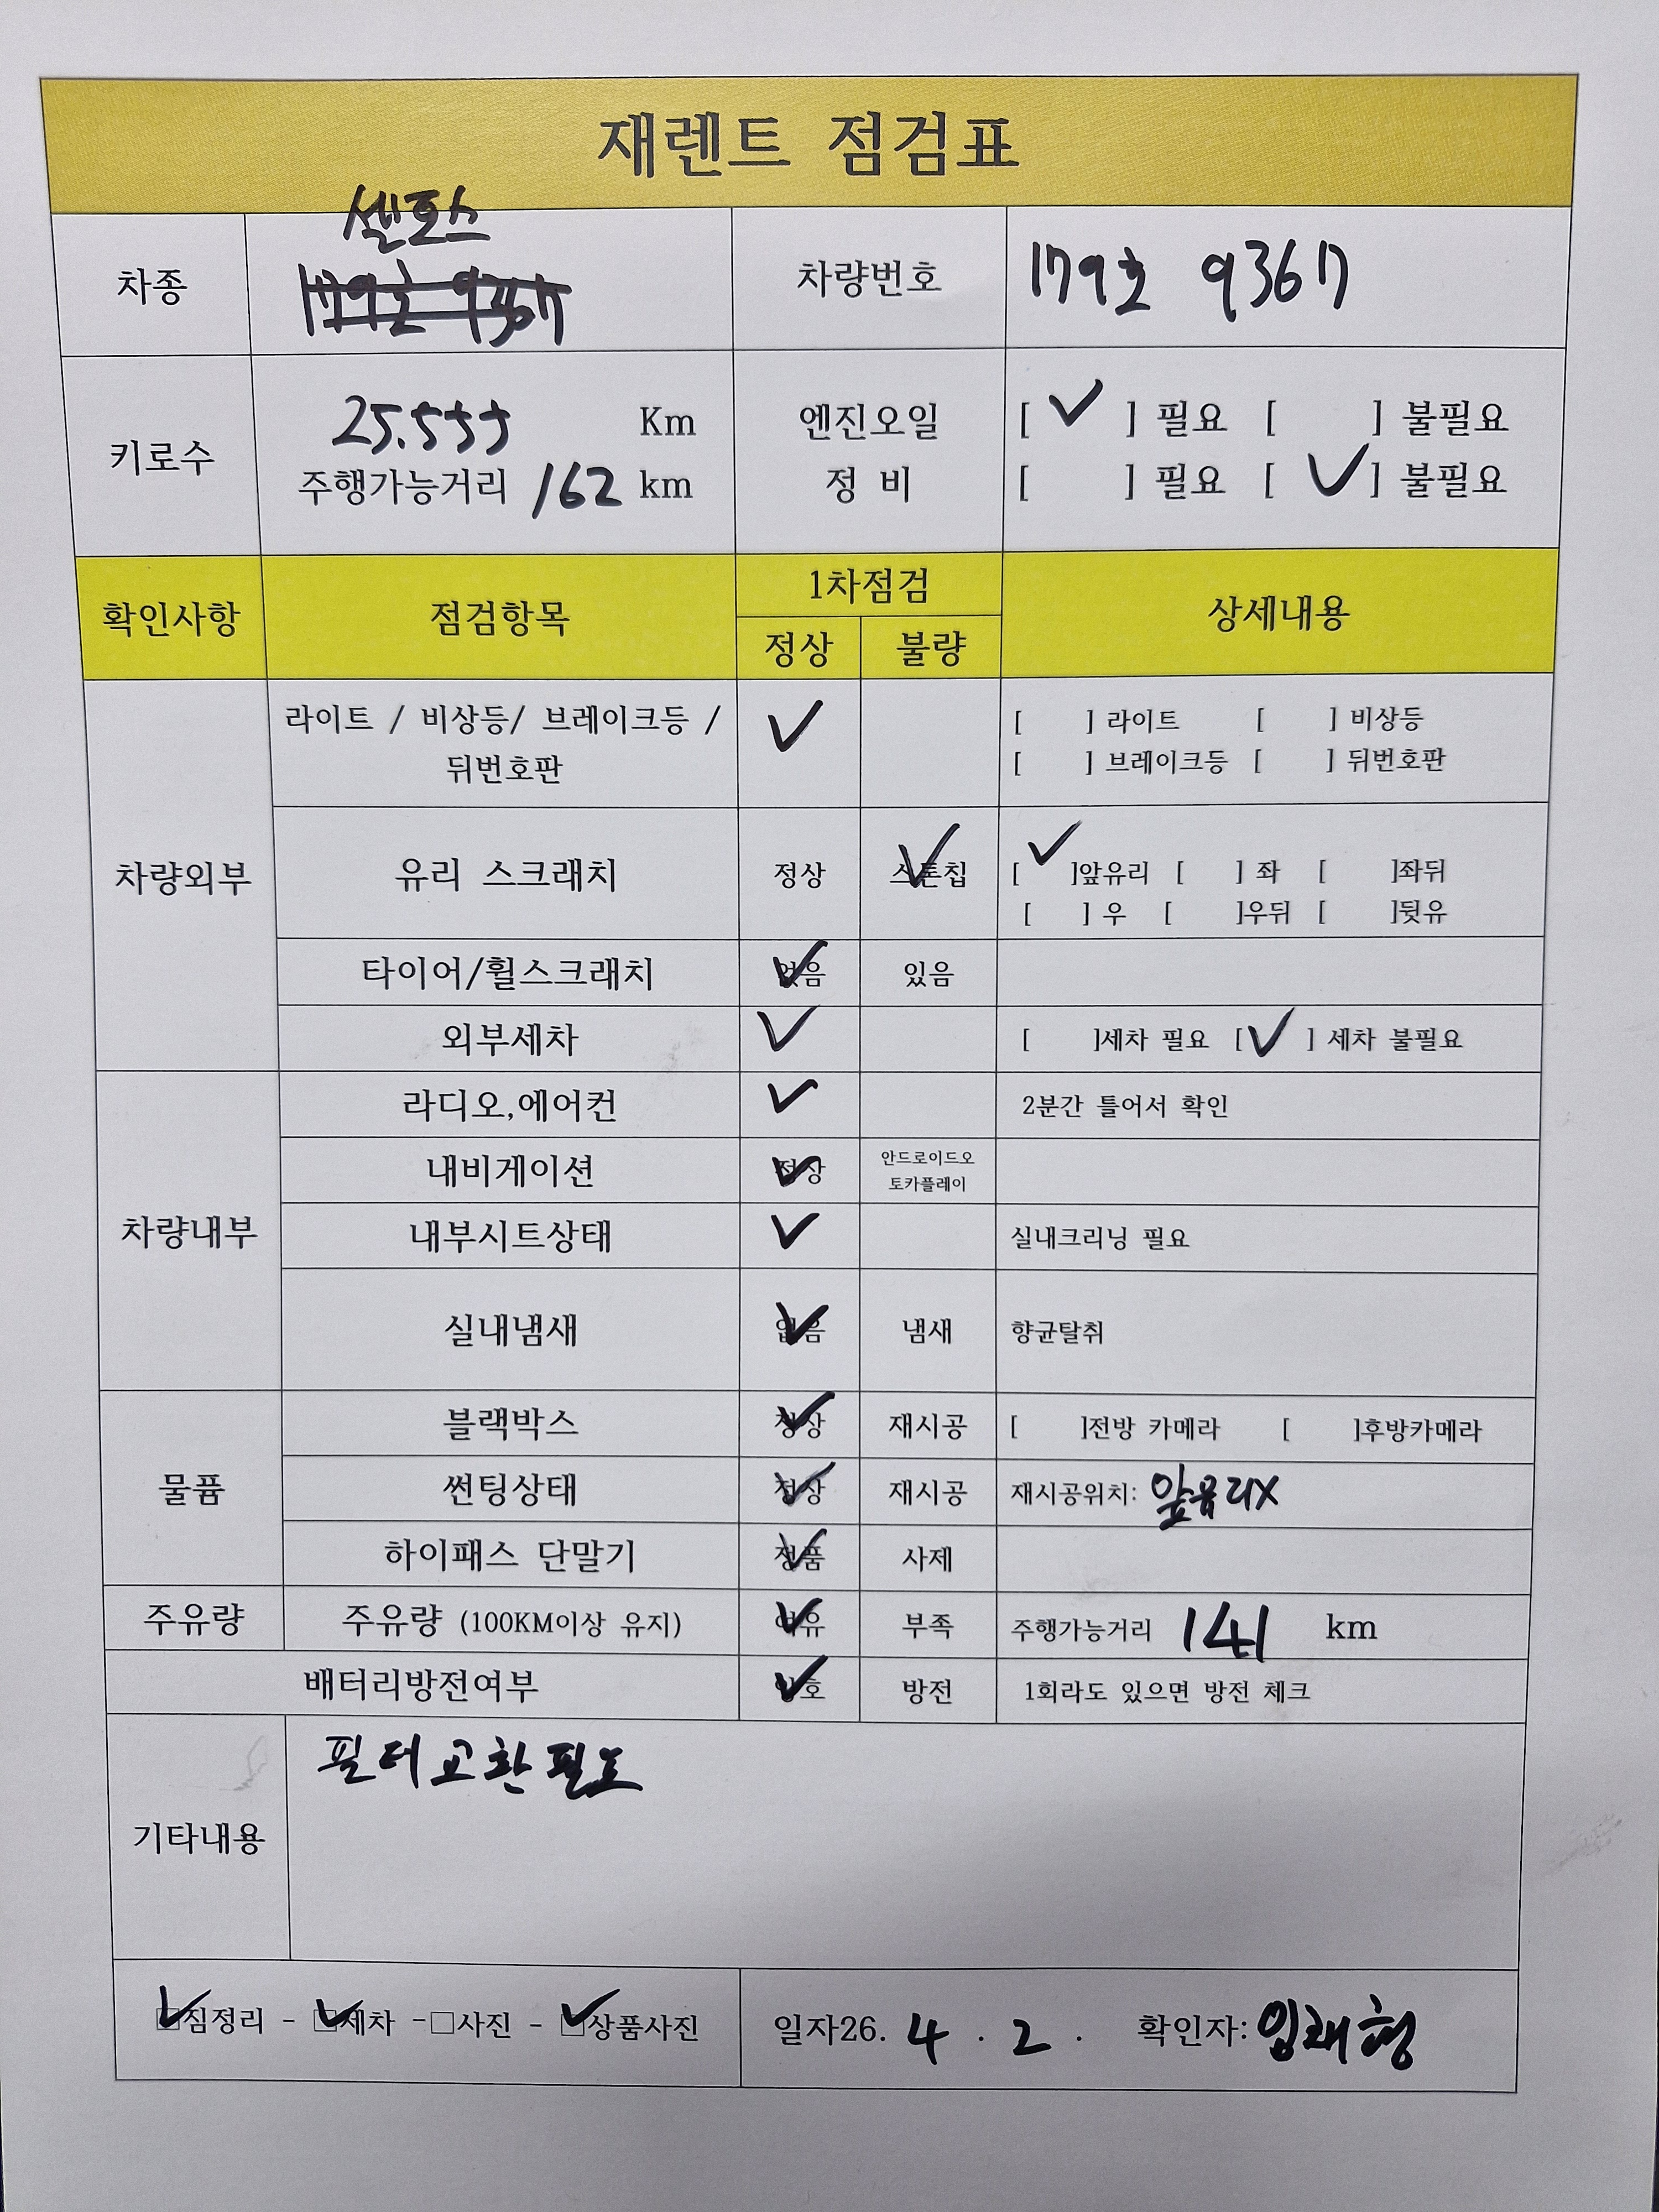 재렌트 점검표
셀토스
차종 179호 9367 차량번호 179호 9367
키로수 25.555 Km 엔진오일 [ ✓ ] 필요 [ ] 불필요
주행가능거리 162 km 정 비 [ ] 필요 [ ✓ ] 불필요
확인사항 점검항목 1차점검 상세내용
정상 불량
차량외부
라이트 / 비상등/ 브레이크등 / 뒤번호판 ✓ [ ] 라이트 [ ] 비상등
[ ] 브레이크등 [ ] 뒤번호판
유리 스크래치 정상 스톤칩 ✓ [ ✓ ]앞유리 [ ] 좌 [ ]좌뒤
[ ] 우 [ ]우뒤 [ ]뒷유
타이어/휠스크래치 없음 ✓ 있음
외부세차 ✓ [ ]세차 필요 [ ✓ ] 세차 불필요
차량내부
라디오,에어컨 ✓ 2분간 틀어서 확인
내비게이션 정상 ✓ 안드로이드오
토카플레이
내부시트상태 ✓ 실내크리닝 필요
실내냄새 없음 ✓ 냄새 향균탈취
물품
블랙박스 정상 ✓ 재시공 [ ]전방 카메라 [ ]후방카메라
썬팅상태 정상 ✓ 재시공 재시공위치: 앞유리X
하이패스 단말기 정품 ✓ 사제
주유량 주유량 (100KM이상 유지) 여유 ✓ 부족 주행가능거리 141 km
배터리방전여부 양호 ✓ 방전 1회라도 있으면 방전 체크
기타내용 필터교환필요
☑짐정리 - ☑세차 -□사진 - ☑상품사진 일자26. 4 . 2 . 확인자: